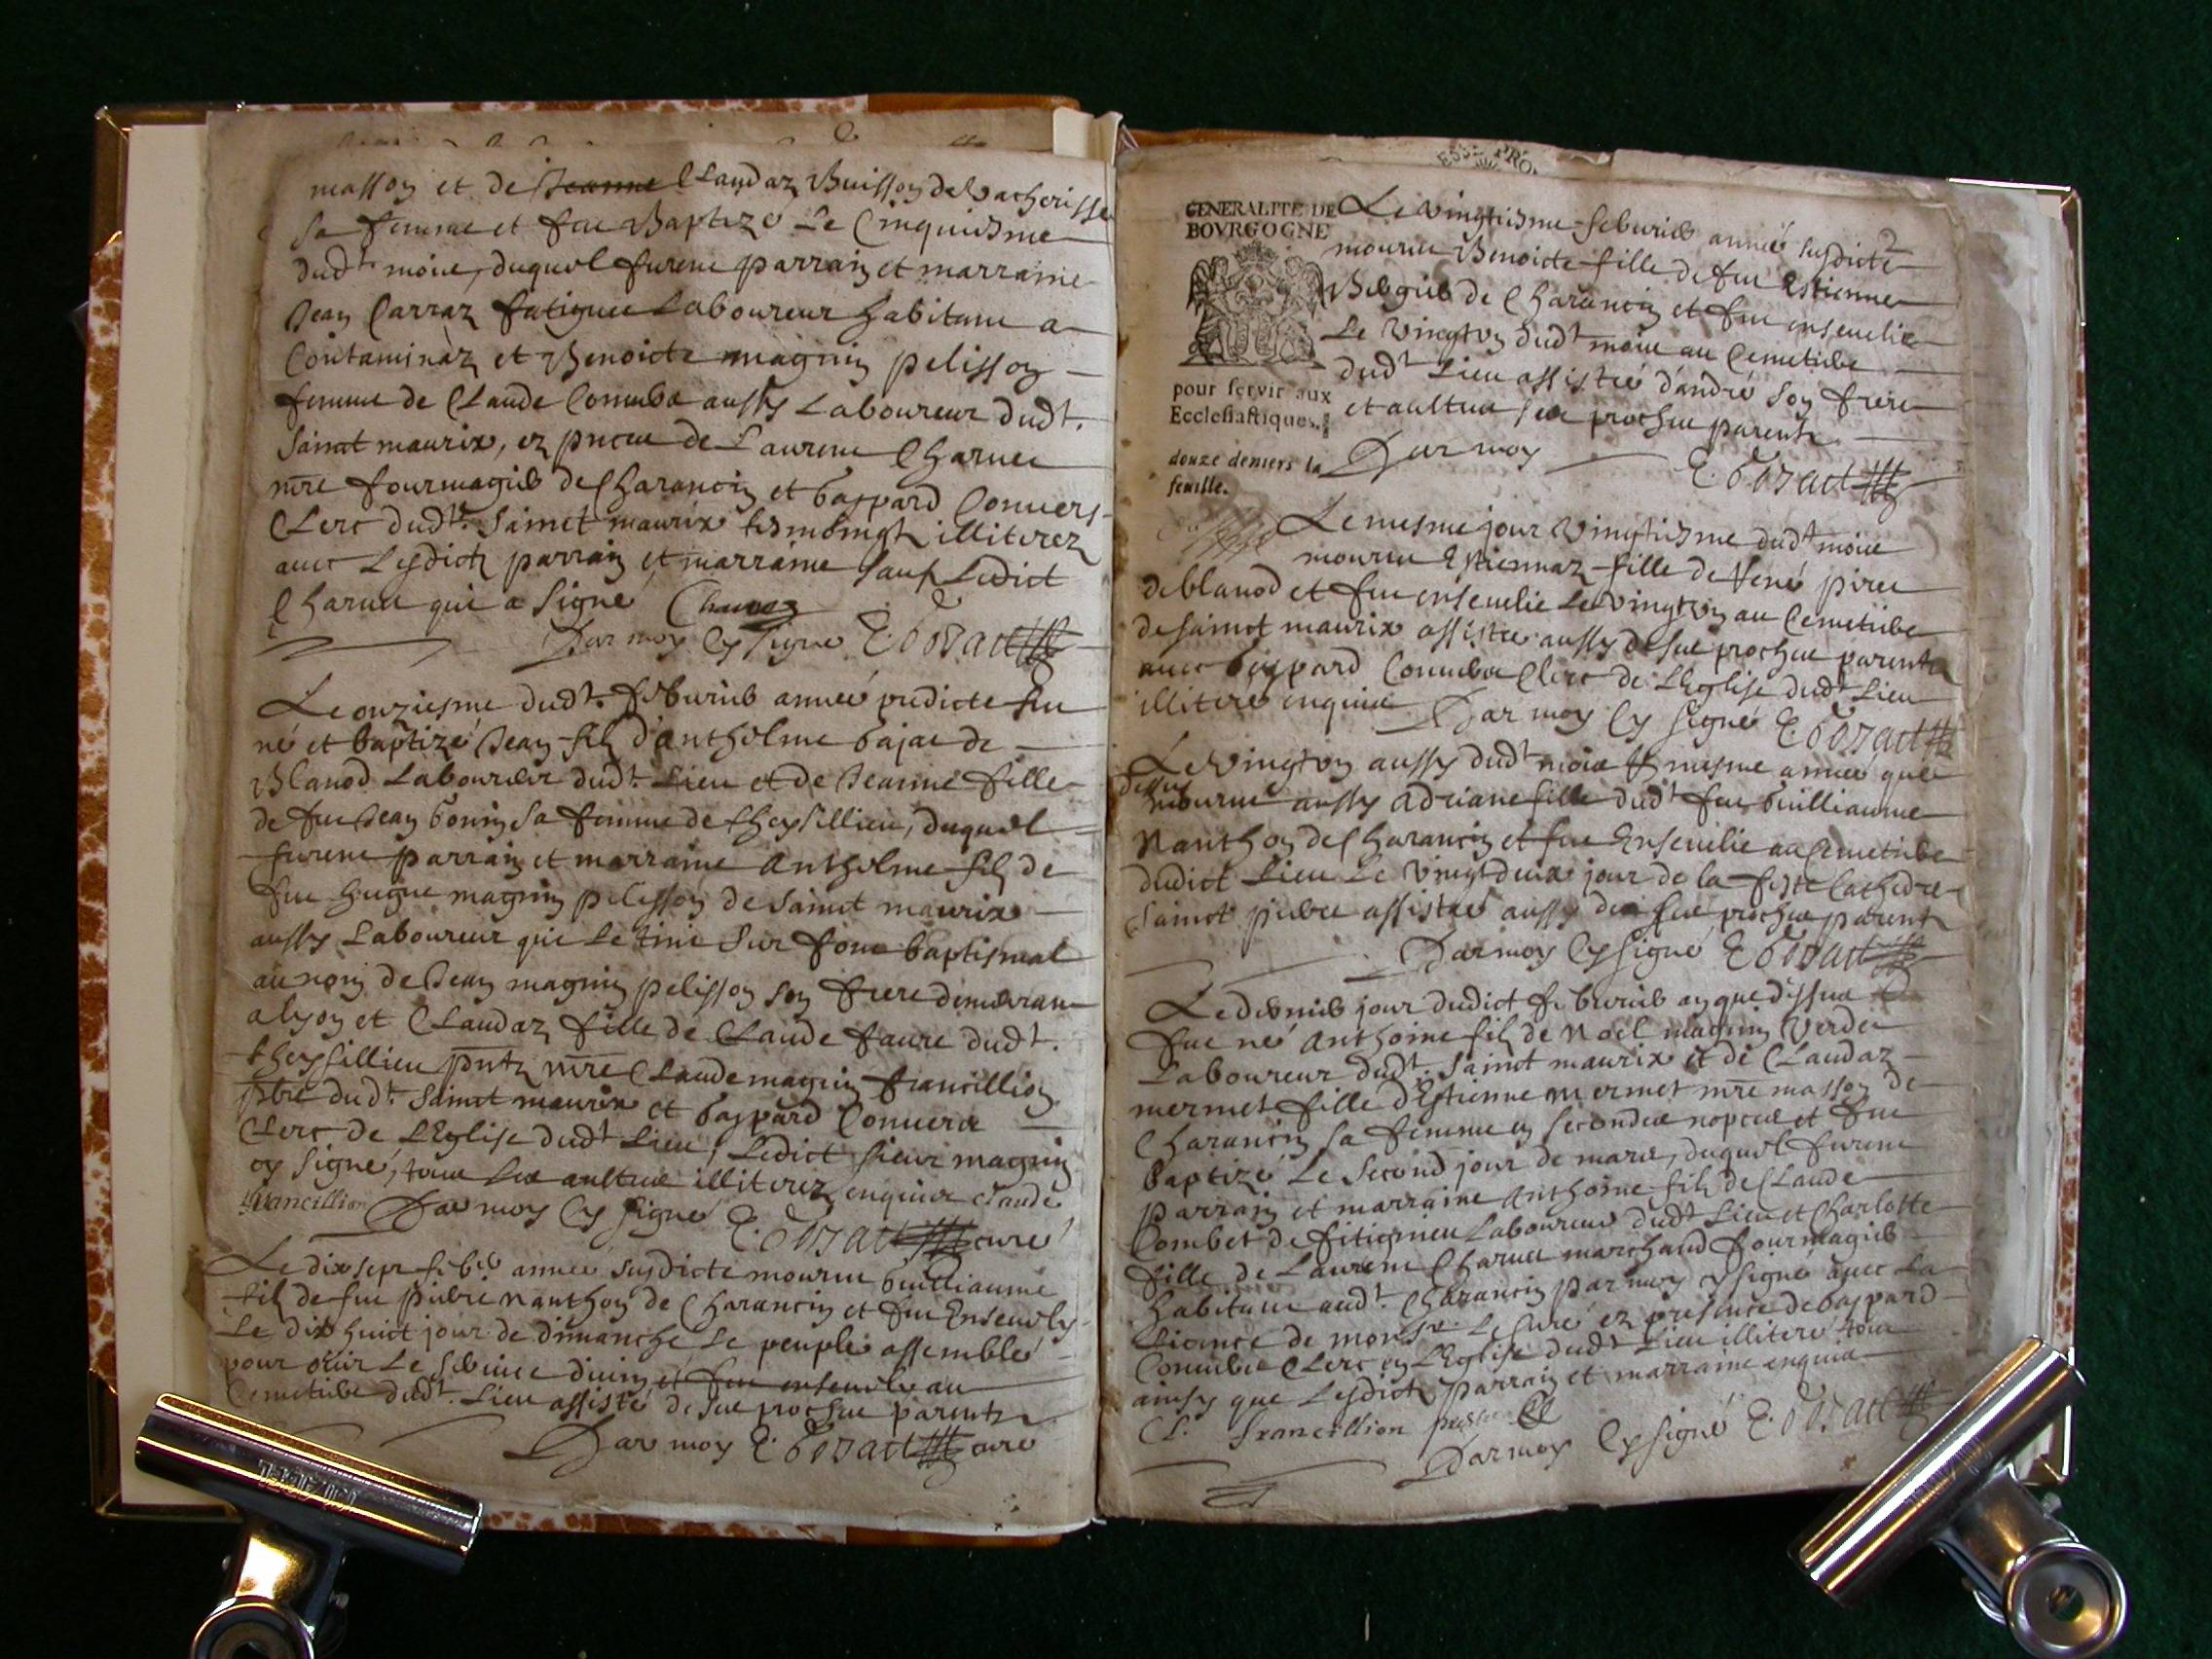 masson et de Jeanne Claudaz Buisson de Vacherisse
sa femme et fut Baptizé Le Cinquiesme
dudt. mois, duquel furent parrain et marraine
Jean Carraz fatiguet Laboureur habitant a
Contaminaz et Benoicte magnin pelisson
femme de Claude Conuers aussy Laboureur dudt.
Sainct maurix, ez pnce de Laurent Charuet
mre fourmagier de Charancin et Gaspard Conuers
Clerc dudt. Sainct maurix tesmoingts illiterez
auec Lesdicts parrain et marraine sauf Ledict
Charuet qui a signé Charuez
Par moy Cy signé E. Gozact
Le onziesme dudt. feburier année pndicte fut
né et baptizé Jean filz d'antholme bajat de
Blanod Laboureur dudt. Lieu et de Jeanne fille
de feu Jean bonin sa femme de Cheysillieu, duquel
furent parrain et marraine Antholme filz de
feu hugue magnin pelisson de Sainct maurix
aussy Laboureur qui le tint sur font baptismal
au nom de Jean magnin pelisson son frere demeurant
a lyon et Claudaz fille de Claude faure dudt.
Cheysillieu pnts mre Claude magnin francillion
pbre dudt. Sainct maurix et Gaspard Conuers
Clerc de L'Eglise dudt Lieu, Ledict sieur magnin
cy signé, tous les aultres illiterez enquis Claude
francillion Par moy Cy signé E. Gozact curé
Le dix sept feber année susdicte mourut Guilliaume
filz de feu pierre nanthon de Charancin et fut Enseuely
Le dix huict jour de dimanche Le peuple assemblé
pour ouir Le seruice diuin et fut enseuely au
Cemetiere dudt. Lieu assisté de ses proches parents
Par moy E. Gozact curé
ESSE PRO
GENERALITE DE
BOVRGOGNE
pour servir aux
Ecclesiastiques.
douze deniers la
feuille.
2
Le vingtiesme feburier année susdicte
mourut Benoicte fille de feu Estienne
Bergier de Charancin et fut enseuelie
Le vingt un dudt mois au Cemetiere
dudt Lieu assistée d'andré son frere
et aultres ses proches parents
Par moy E. Gozact
Le mesme jour vingtiesme dudt mois
mourut Estiennaz fille de René piret
de blanod et fut enseuelie Le vingt un au Cemetiere
de Sainct maurix assistée aussy de ses proches parents
auec Gaspard Conuers Clerc de L'Eglise dudt Lieu
illiteré enquis Par moy Cy signé E. Gozact
Le vingt un aussy dudt mois et mesme année que
dessus
mourut aussy Adriane fille dudt feu Guilliaume
Nanthon de Charancin et fut Enseuelie au Cemetiere
dudict Lieu Le vingt deux jour de la feste Cathedre
Sainct pierre assistée aussy de ses proches parents
Par moy Cy signé E. Gozact
Le dernier jour dudict feburier an que dessus
fut né Anthoine filz de Noel magnin Verdet
Laboureur dudt. Sainct maurix et de Claudaz
mermet fille d'Estienne mermet mre masson de
Charancin sa femme en secondes nopces et fut
baptizé Le second jour de mars, duquel furent
parrain et marraine Anthoine filz de Claude
Combet de fitignieu Laboureur dudt Lieu et Charlotte
fille de Laurent Charuet marchand fourmagier
habitant audt. Charancin par moy Cy signé auec La
Licence de monsr. Le Curé ez presence de Gaspard
Conuers Clerc en L'Eglise dudt Lieu illiteré tout
ainsy que Lesdicts parrain et marraine enquis
Cl. francillion prestre
Par moy Cy signé E. Gozact